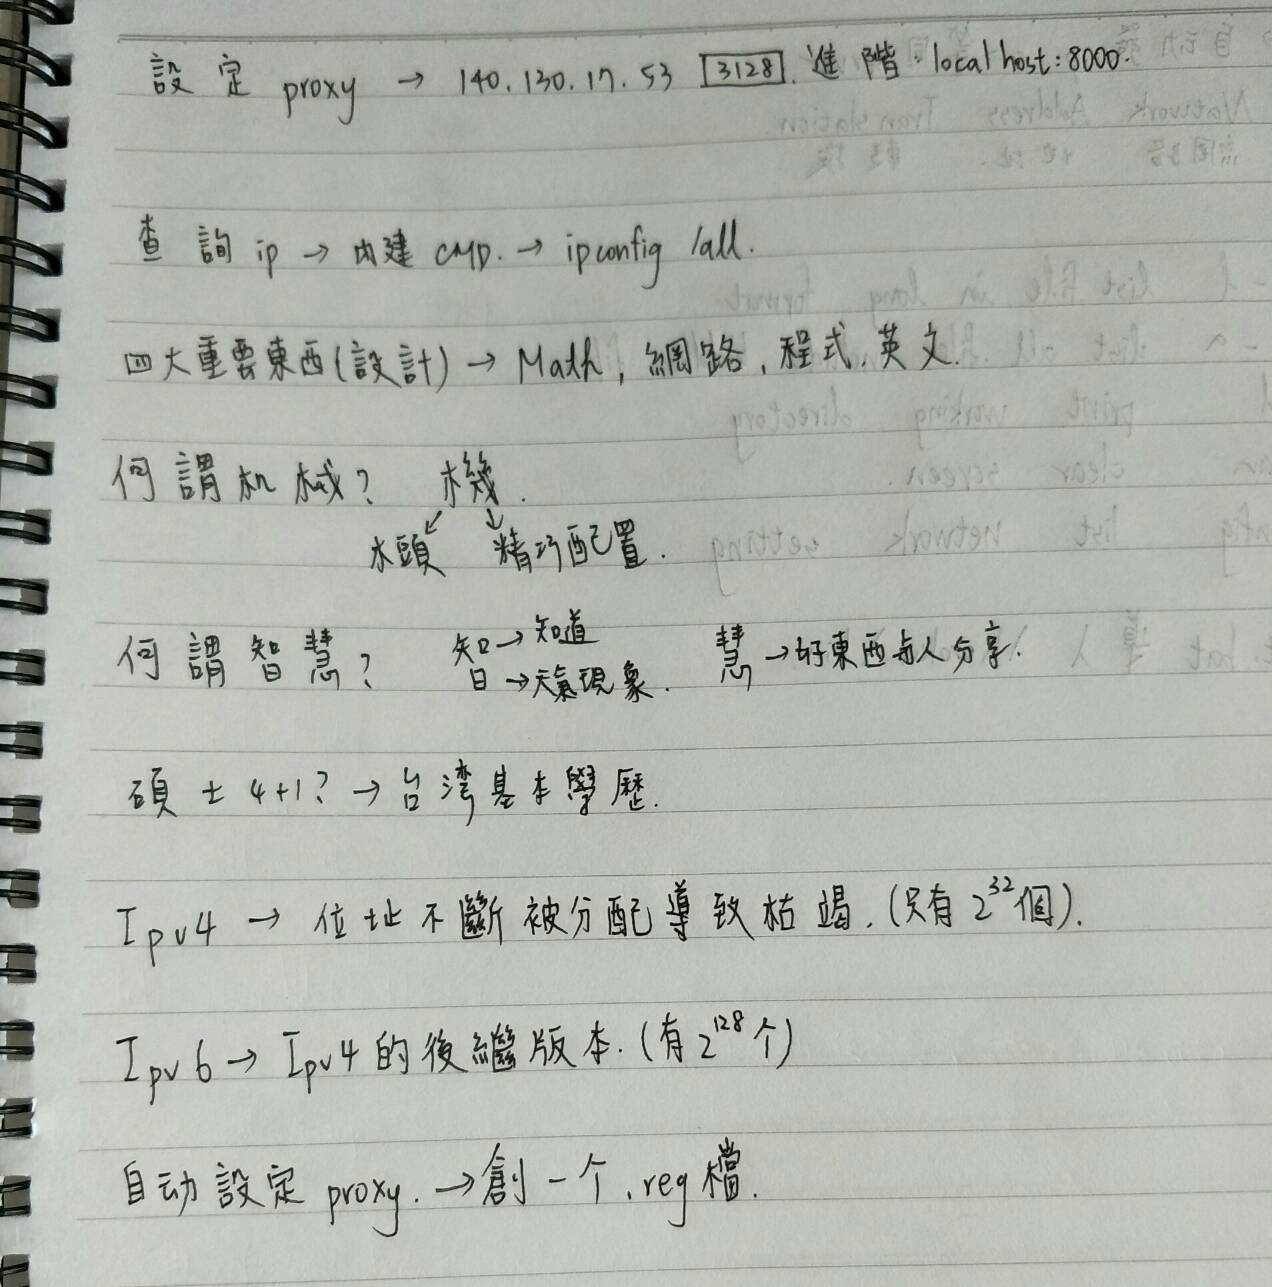 設定 proxy → 140.130.17.53 3128. 進階:localhost:8000.
查詢 ip → 內建 CMD. → ipconfig /all.
四大重要東西(設計) → Math, 網路, 程式, 英文.
何謂机械? 機.
木頭 精巧配置.
何謂智慧? 知→知道 慧→好東西與人分享.
日→天氣現象.
碩士 4+1? → 台湾基本學歷.
Ipv4 → 位址不斷被分配導致枯竭. (只有 2³²個).
Ipv6 → Ipv4 的後繼版本. (有 2¹²⁸个)
自动設定 proxy. → 創一个 .reg 檔.